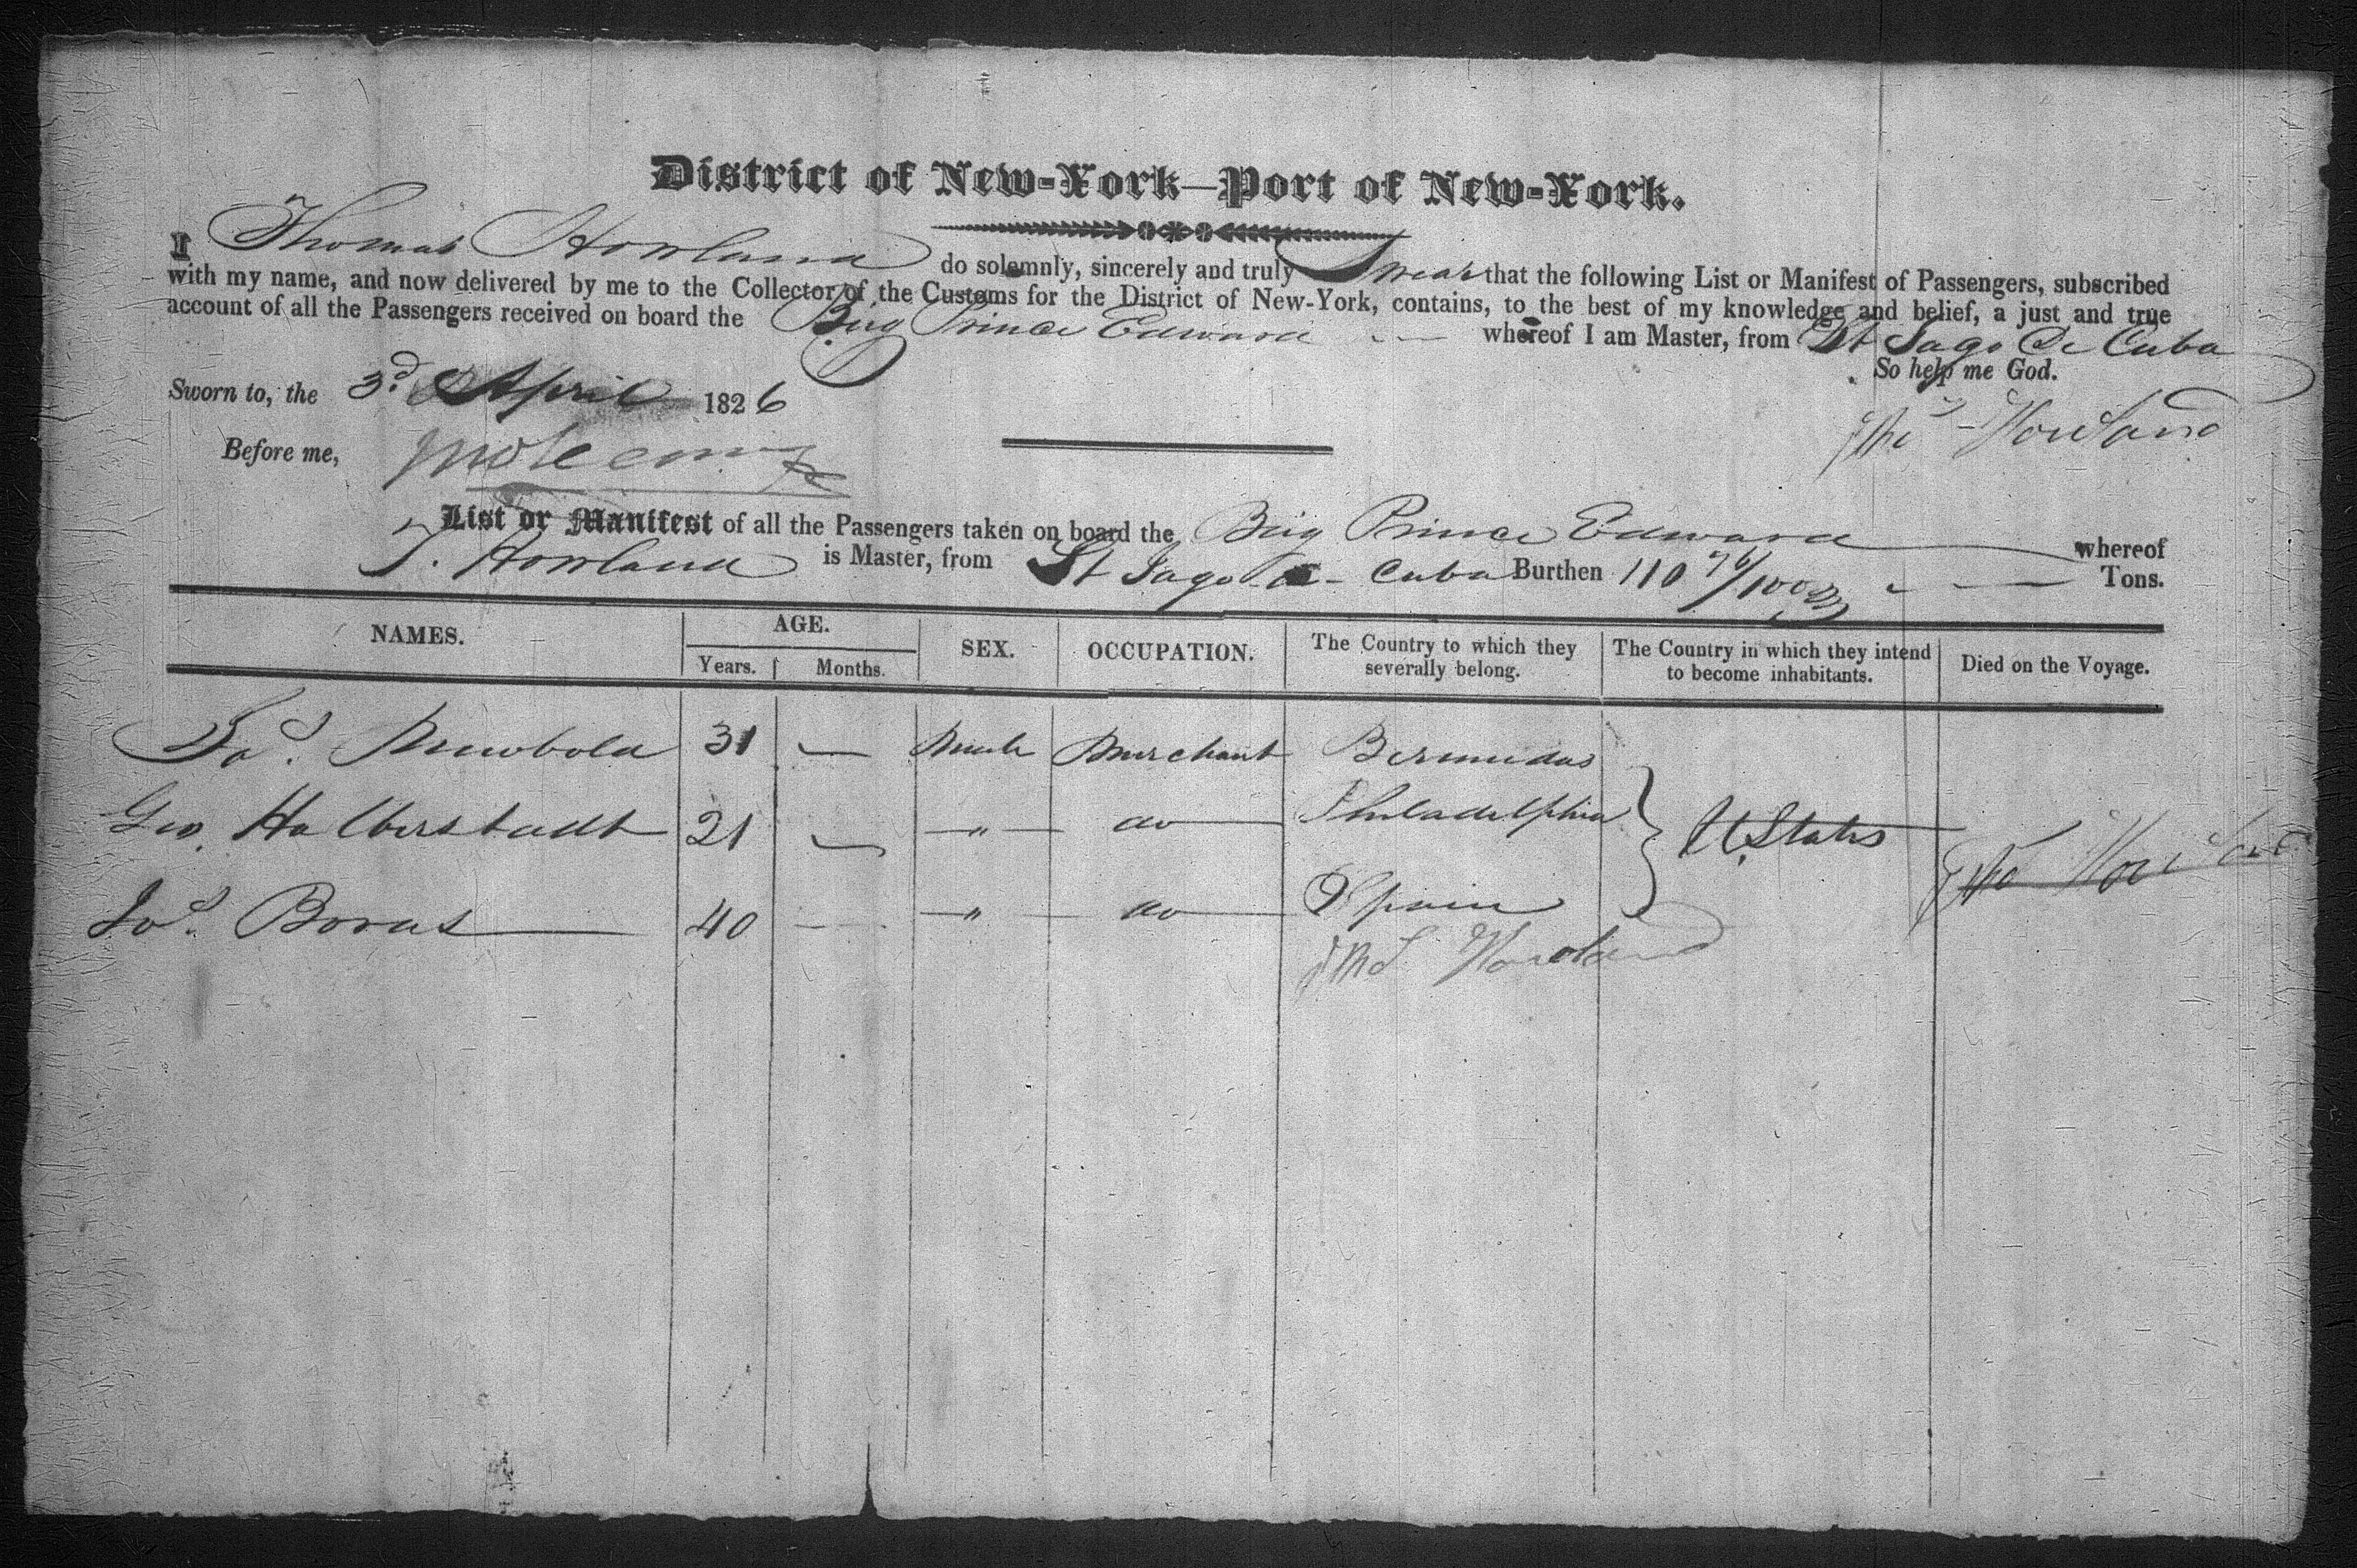 District of New-York—Port of New-York.
I Thomas Howland do solemnly, sincerely and truly Swear that the following List or Manifest of Passengers, subscribed
with my name, and now delivered by me to the Collector of the Customs for the District of New-York, contains, to the best of my knowledge and belief, a just and true
account of all the Passengers received on board the Brig Prince Edward whereof I am Master, from St Iago De Cuba
So help me God.
Sworn to, the 3d April 1826
Thos Howland
Before me,
List or Manifest of all the Passengers taken on board the Brig Prince Edward whereof
T. Howland is Master, from St Iago de Cuba Burthen 110 76/100 Tons.
NAMES. AGE. Years. Months. SEX. OCCUPATION. The Country to which they severally belong. The Country in which they intend to become inhabitants. Died on the Voyage.
Newbold 31 — Male Merchant Bermudas
Geo. Halberstadt 21 — " do Philadelphia U. States
Jos. Borras 40 — " do Spain
Thos Howland
Thos Howland